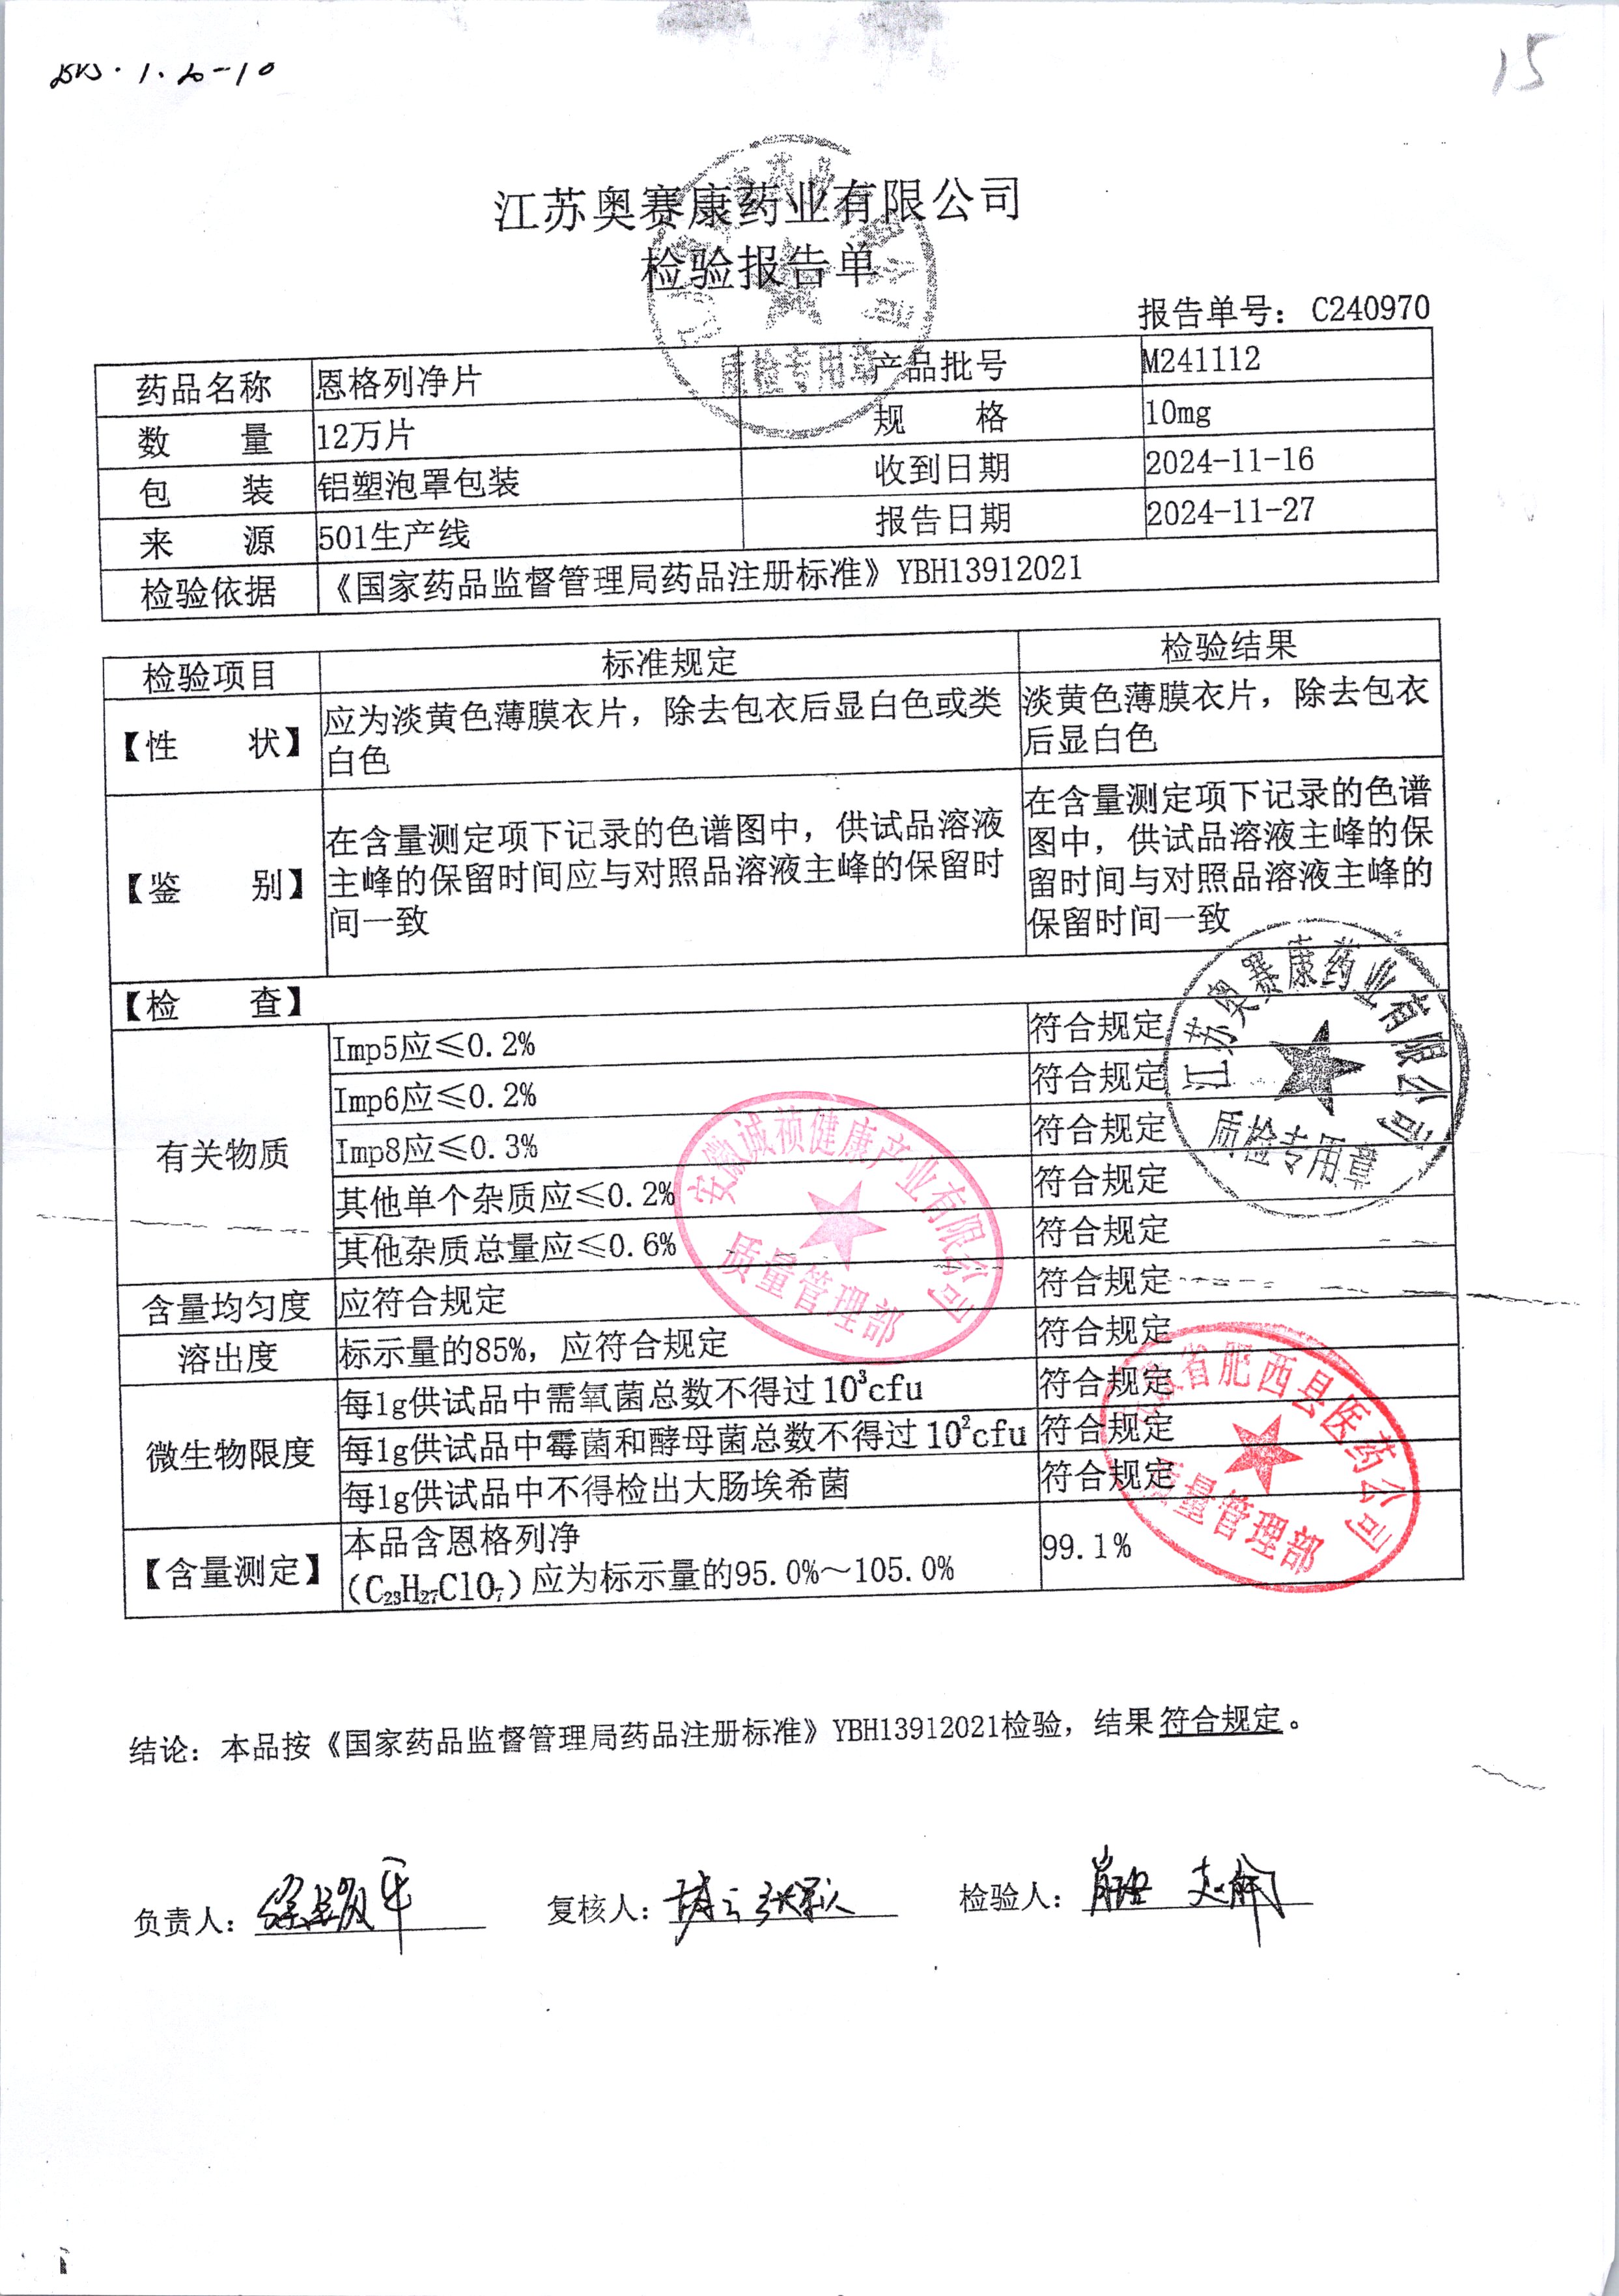 15
江苏奥赛康药业有限公司
检验报告单
报告单号：C240970
药品名称 恩格列净片 产品批号 M241112
数 量 12万片 规 格 10mg
包 装 铝塑泡罩包装 收到日期 2024-11-16
来 源 501生产线 报告日期 2024-11-27
检验依据 《国家药品监督管理局药品注册标准》YBH13912021
检验项目 标准规定 检验结果
【性 状】 应为淡黄色薄膜衣片，除去包衣后显白色或类
白色
淡黄色薄膜衣片，除去包衣
后显白色
【鉴 别】 在含量测定项下记录的色谱图中，供试品溶液
主峰的保留时间应与对照品溶液主峰的保留时
间一致
在含量测定项下记录的色谱
图中，供试品溶液主峰的保
留时间与对照品溶液主峰的
保留时间一致
【检 查】
有关物质
Imp5应≤0.2% 符合规定
Imp6应≤0.2% 符合规定
Imp8应≤0.3% 符合规定
其他单个杂质应≤0.2% 符合规定
其他杂质总量应≤0.6% 符合规定
含量均匀度 应符合规定 符合规定
溶出度 标示量的85%，应符合规定 符合规定
微生物限度
每1g供试品中需氧菌总数不得过10³cfu 符合规定
每1g供试品中霉菌和酵母菌总数不得过10²cfu 符合规定
每1g供试品中不得检出大肠埃希菌 符合规定
【含量测定】 本品含恩格列净
（C₂₃H₂₇ClO₇）应为标示量的95.0%～105.0%
99.1%
江苏奥赛康药业有限公司
质检专用章
质检专用章
安徽诚祯健康产业有限公司
质量管理部
省肥西县医药公司
质量管理部
结论：本品按《国家药品监督管理局药品注册标准》YBH13912021检验，结果符合规定。
负责人： 复核人： 检验人：